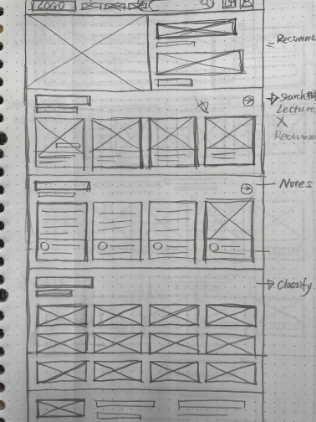 LOGO
Recomme
Search the
Lecture
X
Recomm
Notes
Classify.